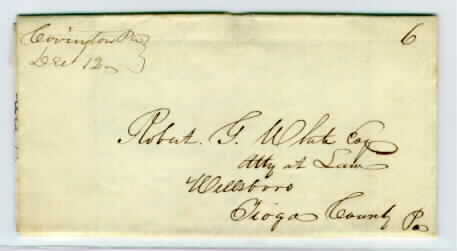 Covington Pa
Dec 12
6
Robert. G. White Esq
Atty at Law
Wellsboro
Tioga County Pa